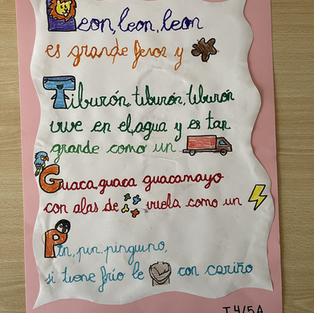 Leon, leon, leon
es grande feroz y
Tiburón, tiburón, tiburón
vive en el agua y es tan
grande como un
Guaca, guaca guacamayo
con alas de vuela como un
Pin, pin, pinguino,
si tiene frío le con cariño
T4/5A